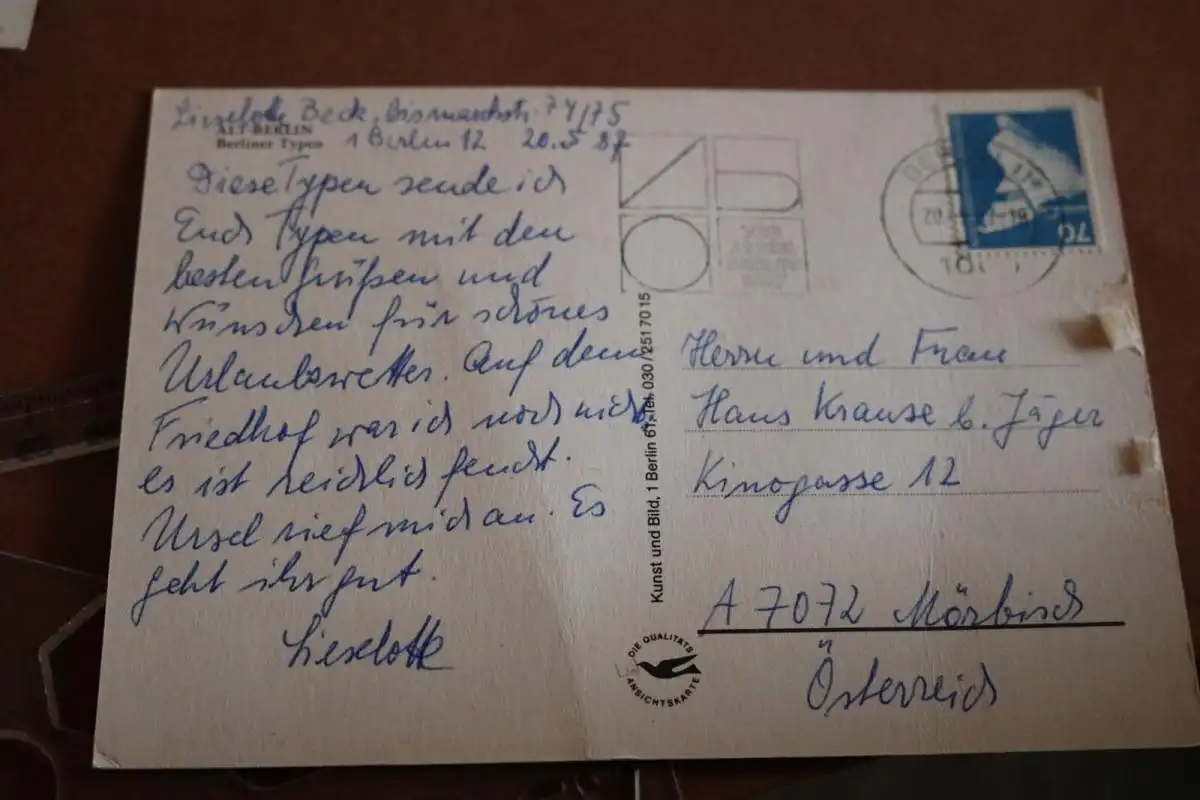 Lieselotte Beck, Bismarckstr. 74/75
1 Berlin 12 20.5 87
ALT-BERLIN
Berliner Typen
Diese Typen sende ich
Euch Typen mit den
besten Grüßen und
Wünschen für schönes
Urlaubswetter. Auf dem
Friedhof war ich noch nicht,
es ist reichlich feucht.
Ursel rief mich an. Es
geht ihr gut.
Lieselotte
Kunst und Bild, 1 Berlin 61, Tel. 030 / 251 70 15
DIE QUALITÄTS
ANSICHTSKARTE
70
Herrn und Frau
Hans Krause b. Jäger
Kinogasse 12
A 7072 Mörbisch
Österreich